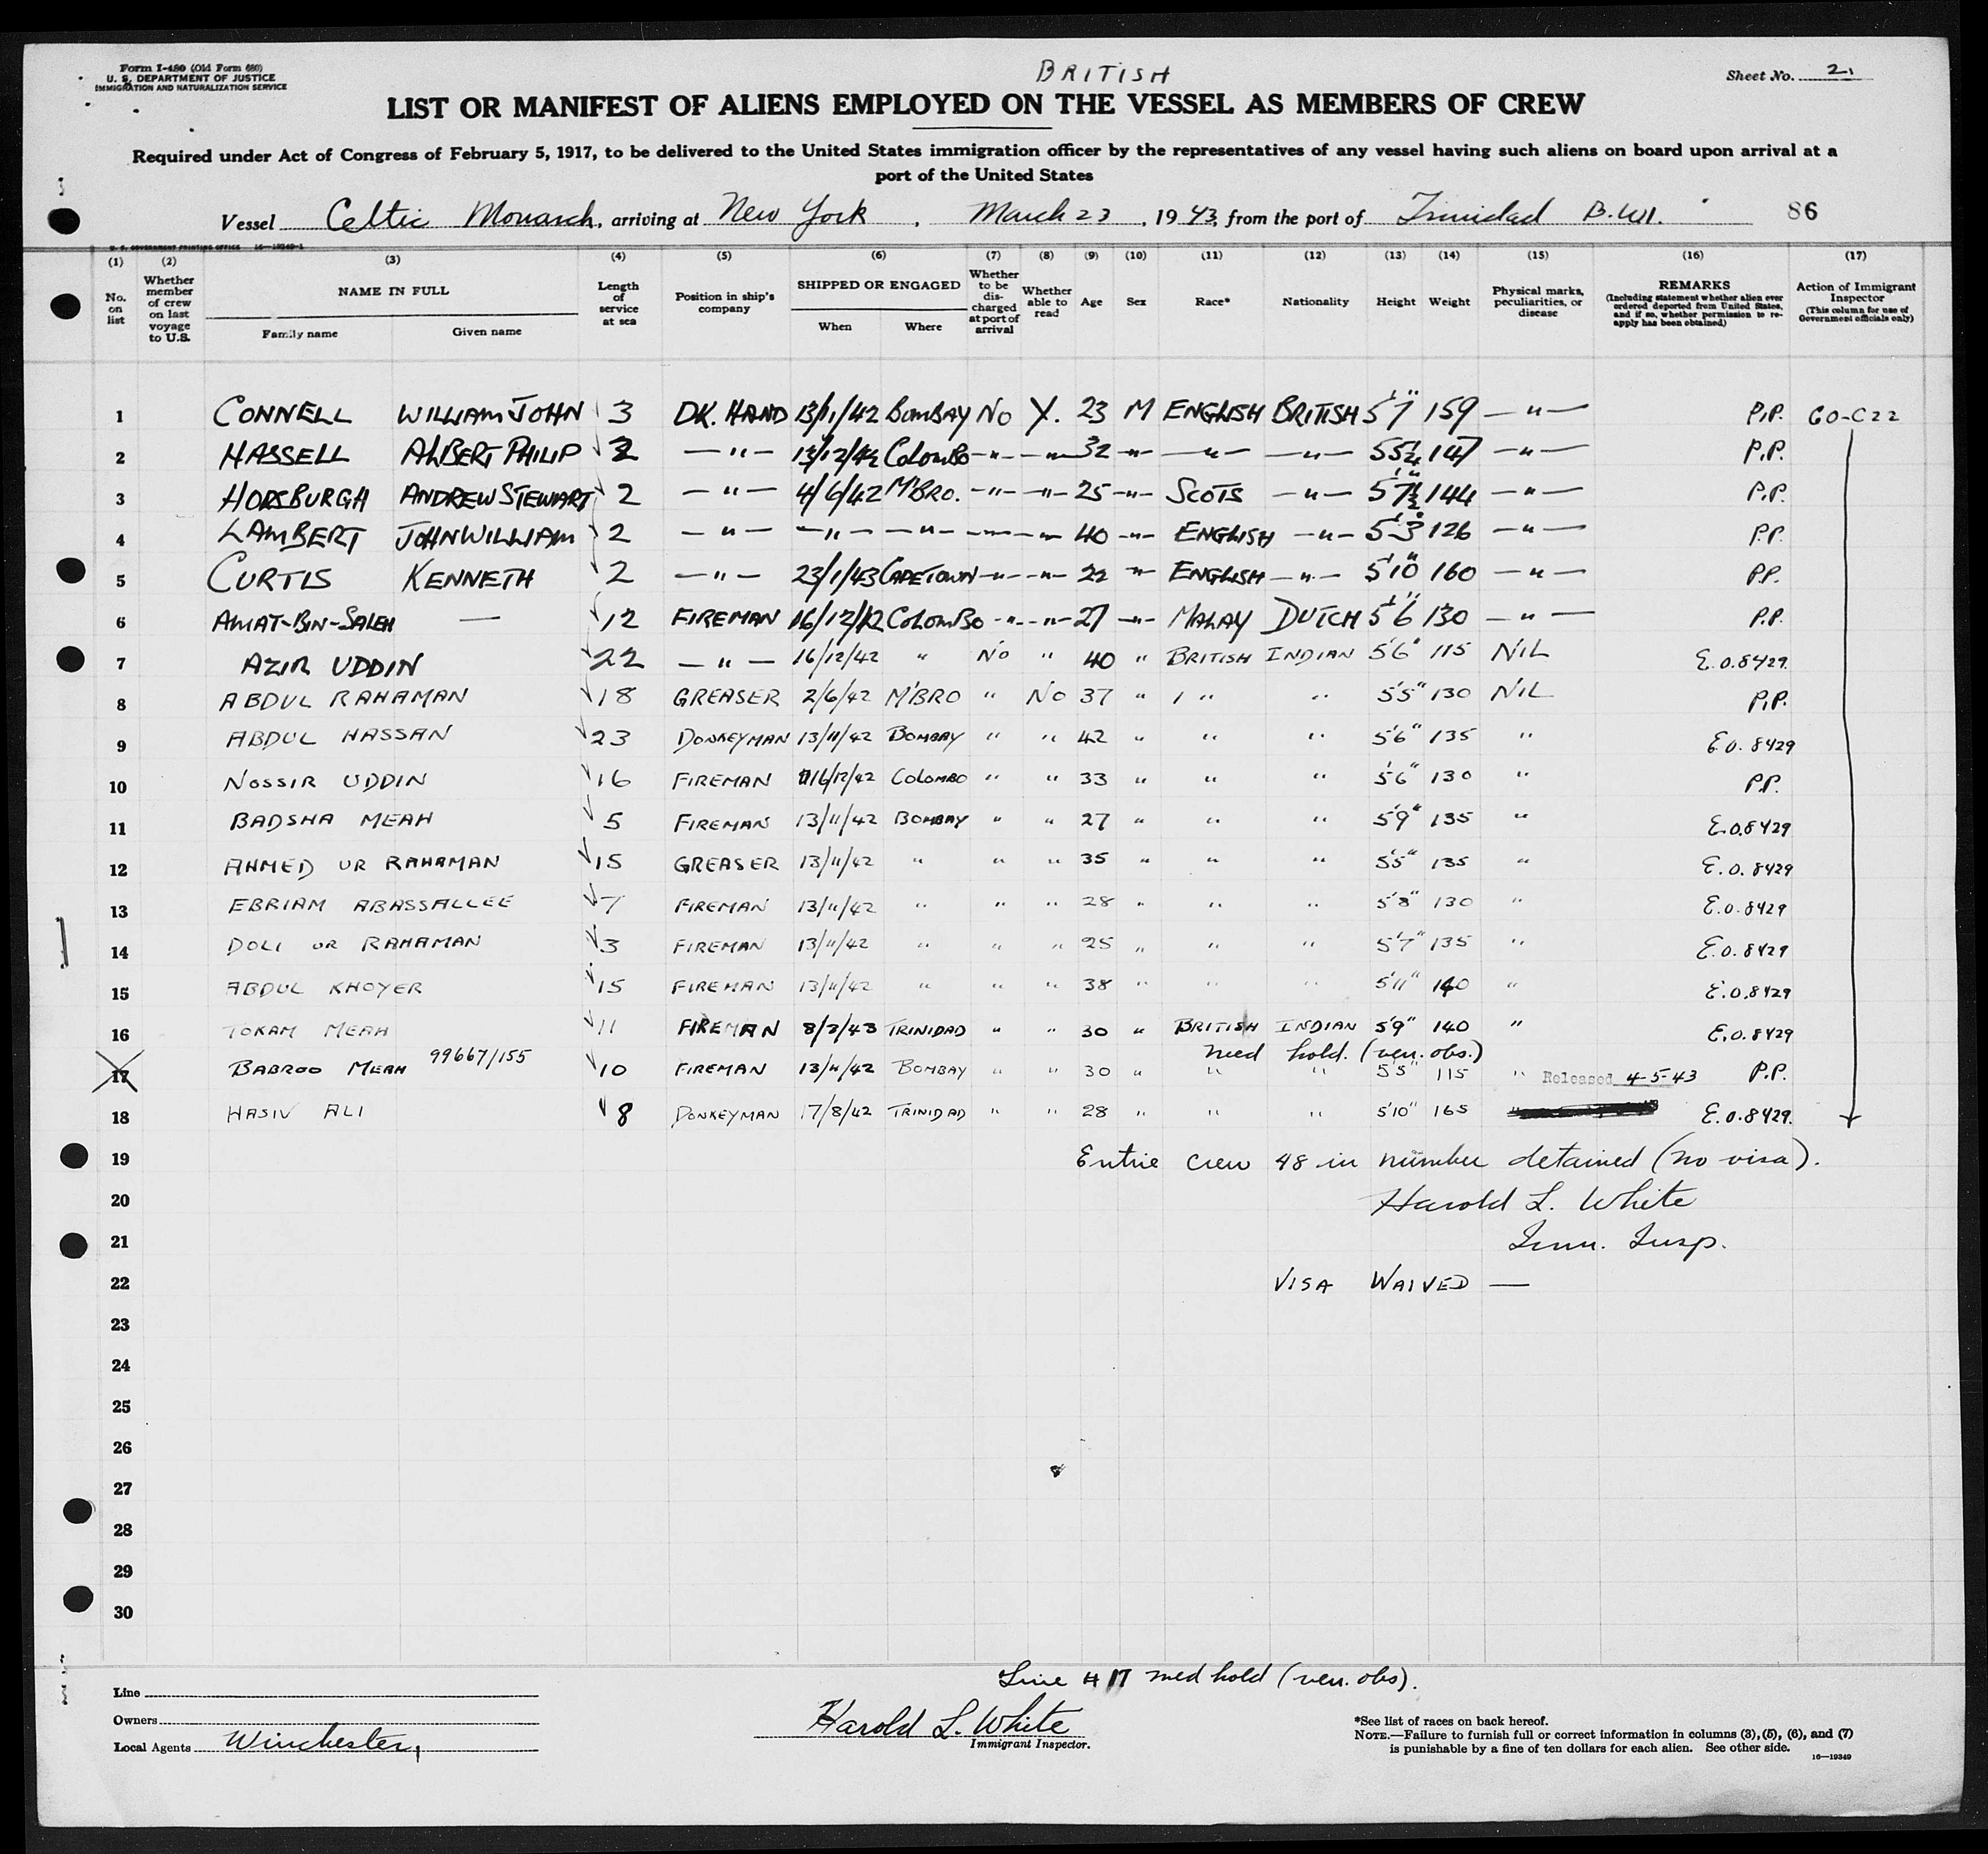 Form I-480 (Old Form 680)
U. S. DEPARTMENT OF JUSTICE
IMMIGRATION AND NATURALIZATION SERVICE
BRITISH
Sheet No. 2
LIST OR MANIFEST OF ALIENS EMPLOYED ON THE VESSEL AS MEMBERS OF CREW
Required under Act of Congress of February 5, 1917, to be delivered to the United States immigration officer by the representatives of any vessel having such aliens on board upon arrival at a
port of the United States
Vessel Celtic Monarch, arriving at New York, March 23, 1943, from the port of Trinidad B.W.I. 86
U. S. GOVERNMENT PRINTING OFFICE 16—19349-1
(1) (2) (3) (4) (5) (6) (7) (8) (9) (10) (11) (12) (13) (14) (15) (16) (17)
No. on list
Whether member of crew on last voyage to U.S.
NAME IN FULL
Family name Given name
Length of service at sea
Position in ship's company
SHIPPED OR ENGAGED
When Where
Whether to be discharged at port of arrival
Whether able to read
Age Sex Race* Nationality Height Weight
Physical marks, peculiarities, or disease
REMARKS
(Including statement whether alien ever ordered deported from United States, and if so, whether permission to re-apply has been obtained)
Action of Immigrant Inspector
(This column for use of Government officials only)
1 CONNELL WILLIAM JOHN 3 DK. HAND 13/11/42 BOMBAY NO Y. 23 M ENGLISH BRITISH 5'7" 159 —"— P.P. 60-C22
2 HASSELL ALBERT PHILIP 2 —"— 13/12/42 COLOMBO —"— —"— 32 —"— —"— —"— 5 5½ 147 —"— P.P.
3 HORSBURGH ANDREW STEWART 2 —"— 4/6/42 M'BRO. —"— —"— 25 —"— SCOTS —"— 5'7½" 144 —"— P.P.
4 LAMBERT JOHN WILLIAM 2 —"— —"— —"— —"— —"— 40 —"— ENGLISH —"— 5'3" 126 —"— P.P.
5 CURTIS KENNETH 2 —"— 23/1/43 CAPETOWN —"— —"— 22 —"— ENGLISH —"— 5'10" 160 —"— P.P.
6 AMAT-BIN-SALEH — 12 FIREMAN 16/12/42 COLOMBO —"— —"— 27 —"— MALAY DUTCH 5'6" 130 —"— P.P.
7 AZIR UDDIN 22 —"— 16/12/42 " NO " 40 " BRITISH INDIAN 5'6" 115 NIL E.O.8429.
8 ABDUL RAHAMAN 18 GREASER 2/6/42 M'BRO " NO 37 " " " 5'5" 130 NIL P.P.
9 ABDUL HASSAN 23 DONKEYMAN 13/11/42 BOMBAY " " 42 " " " 5'6" 135 " E.O. 8429
10 NOSSIR UDDIN 16 FIREMAN 16/12/42 COLOMBO " " 33 " " " 5'6" 130 " P.P.
11 BADSHA MEAH 5 FIREMAN 13/11/42 BOMBAY " " 27 " " " 5'9" 135 " E.O.8429
12 AHMED UR RAHAMAN 15 GREASER 13/11/42 " " " 35 " " " 5'5" 135 " E.O. 8429
13 EBRIAM ABASSALLEE 7 FIREMAN 13/11/42 " " " 28 " " " 5'8" 130 " E.O. 8429
14 DOLI UR RAHAMAN 3 FIREMAN 13/11/42 " " " 25 " " " 5'7" 135 " E.O. 8429
15 ABDUL KHOYER 15 FIREMAN 13/11/42 " " " 38 " " " 5'11" 140 " E.O.8429
16 TOKAM MEAH 11 FIREMAN 8/2/43 TRINIDAD " " 30 " BRITISH INDIAN 5'9" 140 " E.O.8429
99667/155 med hold. (ven. obs.)
17 BABROO MEAH 10 FIREMAN 13/11/42 BOMBAY " " 30 " " " 5'5" 115 " Released 4-5-43 P.P.
18 HASIV ALI 8 DONKEYMAN 17/8/42 TRINIDAD " " 28 " " " 5'10" 165 E.O.8429.
19 Entire crew 48 in number detained (no visa).
20 Harold L. White
21 Imm. Insp.
22 VISA WAIVED —
23
24
25
26
27
28
29
30
Line # 17 med hold (ven. obs).
Line
Owners
Local Agents Winchester,
Harold L. White
Immigrant Inspector.
*See list of races on back hereof.
NOTE.—Failure to furnish full or correct information in columns (3), (5), (6), and (7)
is punishable by a fine of ten dollars for each alien. See other side.
16—19349